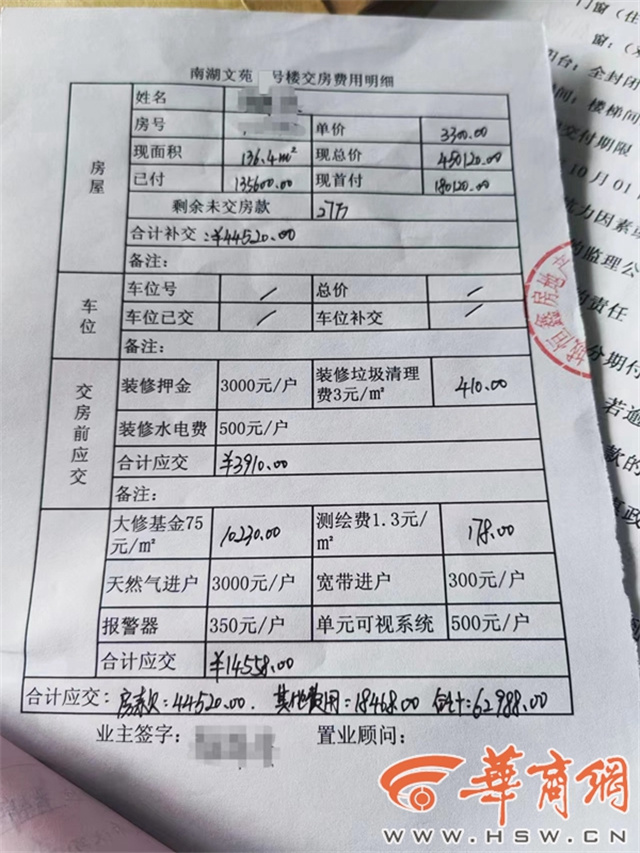 南湖文苑 号楼交房费用明细
姓名
房号 单价 3300.00
现面积 136.4m² 现总价 450120.00
已付 135600.00 现首付 180120.00
剩余未交房款 27万
合计补交:¥44520.00
备注:
房屋
车位号 / 总价 /
车位已交 / 车位补交 /
备注:
车位
装修押金 3000元/户 装修垃圾清理费3元/m² 410.00
装修水电费 500元/户
合计应交 ¥3910.00
备注:
交房前应交
大修基金75元/m² 10230.00 测绘费1.3元/m² 178.00
天然气进户 3000元/户 宽带进户 300元/户
报警器 350元/户 单元可视系统 500元/户
合计应交 ¥14558.00
合计应交:房款:44520.00. 其他费用:18468.00 合计:62988.00
业主签字: 置业顾问:
门窗(住
窗:(
阳台:全封闭
楼梯间
交付期限
10月01
力因素
的监理公
的责任
分期付
若逾
款的
恒鑫房地产
華商網
WWW.HSW.CN